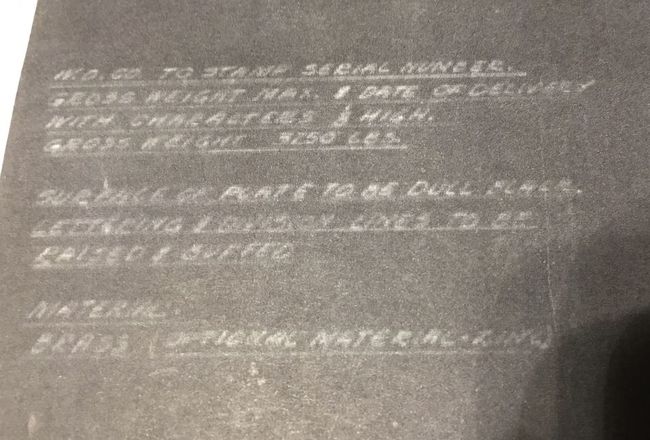 W.D. CO. TO STAMP SERIAL NUMBER.
GROSS WEIGHT MAX. & DATE OF DELIVERY
WITH CHARACTERS HIGH.
GROSS WEIGHT 3150 LBS
SURFACE OF PLATE TO BE DULL BLACK.
LETTERING & LINES TO BE
RAISED & BUFFED
MATERIAL.
BRASS (OPTIONAL MATERIAL-ZINC)